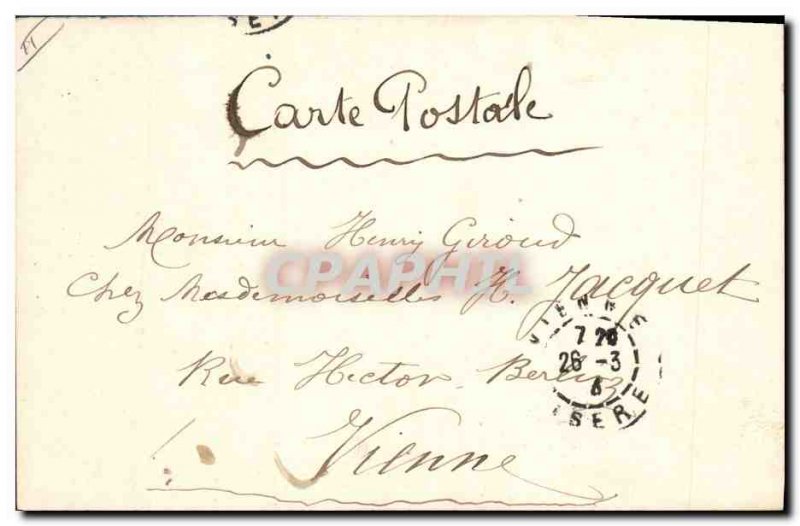 Carte Postale
Monsieur Henry Giroud
CPAPHIL
Chez Mesdemoiselles H. Jacquet
VIENNE
7 20
26 -3
6
ISERE
Rue Hector Berlioz
Vienne